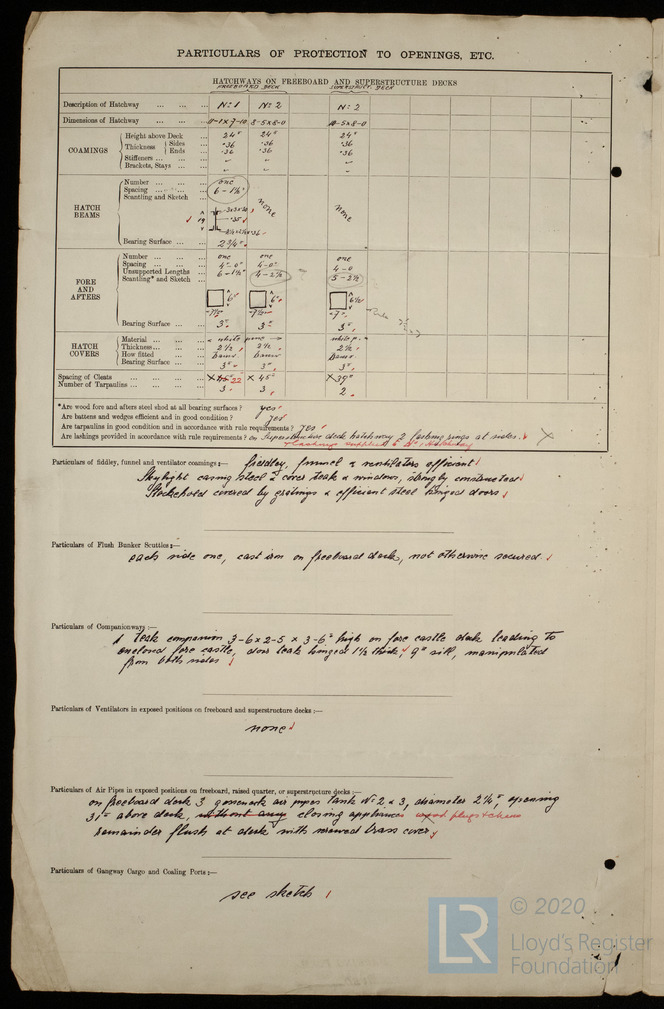 PARTICULARS OF PROTECTION TO OPENINGS, ETC.
HATCHWAYS ON FREEBOARD AND SUPERSTRUCTURE DECKS
FREEBOARD DECK SUPERSTRUCT. DECK
Description of Hatchway ... ... ... No: 1 No: 2 No: 2
Dimensions of Hatchway ... ... 8-5x8-0 10-5x8-0
COAMINGS
Height above Deck 24" 24" 24"
Thickness { Sides ·36 ·36 ·36
Ends ·36 ·36 ·36
Stiffeners ... ... ...
Brackets, Stays ... ...
HATCH BEAMS
Number ... ... ... one none none
Spacing ... ... ... 6-1½"
Scantling and Sketch ...
Bearing Surface ... ... 2¾"
FORE AND AFTERS
Number ... ... ... one one one
Spacing ... ... ... 4"-0" 4-0" 4-0
Unsupported Lengths ... 6-1½" 4-2½ 5-2½
Scantling* and Sketch ... 6" 6" 6½
7½ 7½ 7"
Bearing Surface ... ... 3" 3" 3"
HATCH COVERS
Material ... ... ... white pine white p.
Thickness ... ... ... 2½ 2½ 2½
How fitted ... ...
Bearing Surface ... ... 3" 3" 3"
Spacing of Cleats ... ... ... 22 x 45" x 39"
Number of Tarpaulins ... ... ... 3 3 2
*Are wood fore and afters steel shod at all bearing surfaces? yes
Are battens and wedges efficient and in good condition? yes
Are tarpaulins in good condition and in accordance with rule requirements? yes
Are lashings provided in accordance with rule requirements? on Superstructure deck hatchway 2 lashing rings at sides. X
Particulars of fiddley, funnel and ventilator coamings:— fiddley, funnel & ventilators efficient
Skylight casing steel & cover teak & windows, strongly constructed
Stockehold covered by gratings & efficient steel hinged doors
Particulars of Flush Bunker Scuttles:—
each side one, cast iron on freeboard deck, not otherwise secured
Particulars of Companionways:—
1 teak companion 3-6 x 2-5 x 3-6" high on fore castle deck leading to
enclosed fore castle, door teak hinged 1½ thick, 9" sill, manipulated
from both sides
Particulars of Ventilators in exposed positions on freeboard and superstructure decks:—
none
Particulars of Air Pipes in exposed positions on freeboard, raised quarter, or superstructure decks:—
on freeboard deck 3 gooseneck air pipes tank No: 2 & 3, diameter 2½", opening
31" above deck, without any closing appliances wood plugs & chain
remainder flush at deck with screwed brass cover
Particulars of Gangway Cargo and Coaling Ports:—
see sketch
LR
© 2020
Lloyd's Register
Foundation